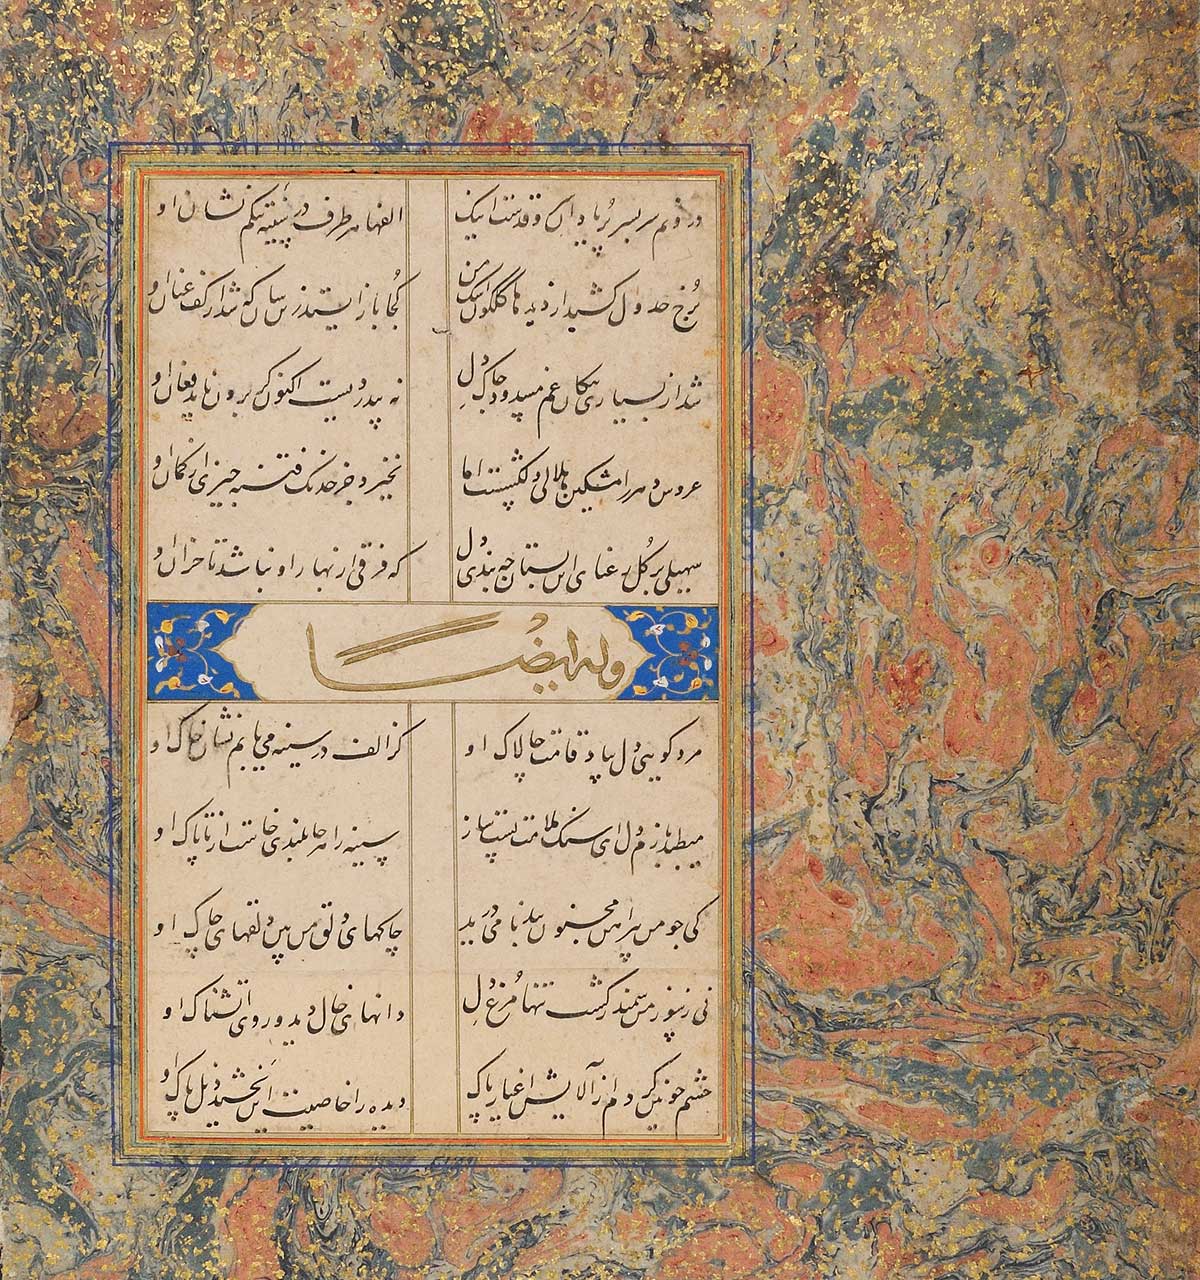 درونم سر بسر پر یاد آن و قدست اینک الفها هر طرف در سینه بینم نشان او
برخ جدول کشید از دیدها گلگون اشک من کجا باز ایستد زینسان که شد از کف عنان او
شد از بسیاری پیکان غم مسدود چاک دل نه بیدردیست اکنون گر برون ناید فغان او
عروس دهر را مشکین هلالی دلکشست اما نخیزد جز خدنک فتنه چیزی از کمان او
سهیلی بر گل رعنای این بستان چه بندی دل که فرقی از بهار او نباشد تا خزان او
وله ایضا
مرد کو بینی دل بیاد قامت چالاک او کز الف در سینه می یابم نشان خاک او
میطپد بازم دل ای سنگ ملامت پست ساز سینه را هر جا بلندی خاست از ناپاک او
کی چو من پیراهن مجنون بدنیا می درید چاکهای دلق من بین دلقهای چاک او
نی ز سوز من سمندر گشت تنها مرغ دل دانهای خال دید و روی آتشناک او
چشم خونین کردم از آلایش اغیار پاک دیده را خاصیت این بخشد ذیل پاک او